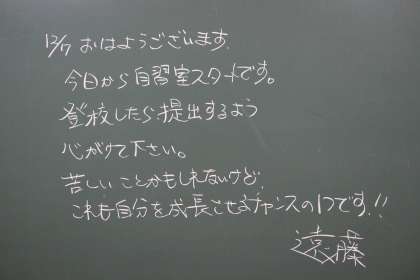 12/17 おはようございます.
今日から自習室スタメです。
登校したら提出するよう
心がけて下さい。
苦しいことかもしれないけど,
これも自分を成長させるチャンスの1つです!!
遠藤